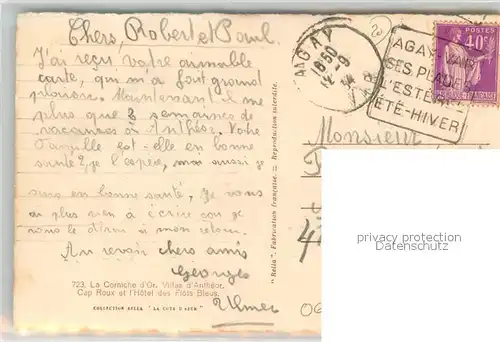 Chers, Robert et Paul.
J'ai reçu votre aimable
carte, qui m'a fait grand
plaisir. Maintenant il me
plus que 2 semaines de
vacances à Anthéor. Votre
famille est-elle en bonne
santé? je l'espère, moi aussi je
suis en bonne santé, je vous
ai plus rien à écrire car je
vous le dirai à mon retour.
Au revoir chers amis
Georges
Ulmer
723. La Corniche d'Or. Villas d'Anthéor.
Cap Roux et l'Hôtel des Flots Bleus.
COLLECTION RELLA "LA COTE D'AZUR"
"Rella" Fabrication française. — Reproduction interdite.
AGAY
18 50
12 - 9
34
AGAY VAR
SES PLAGES
L'ESTÉREL
ÉTÉ-HIVER
POSTES
40c
Monsieur
privacy protection
Datenschutz
06